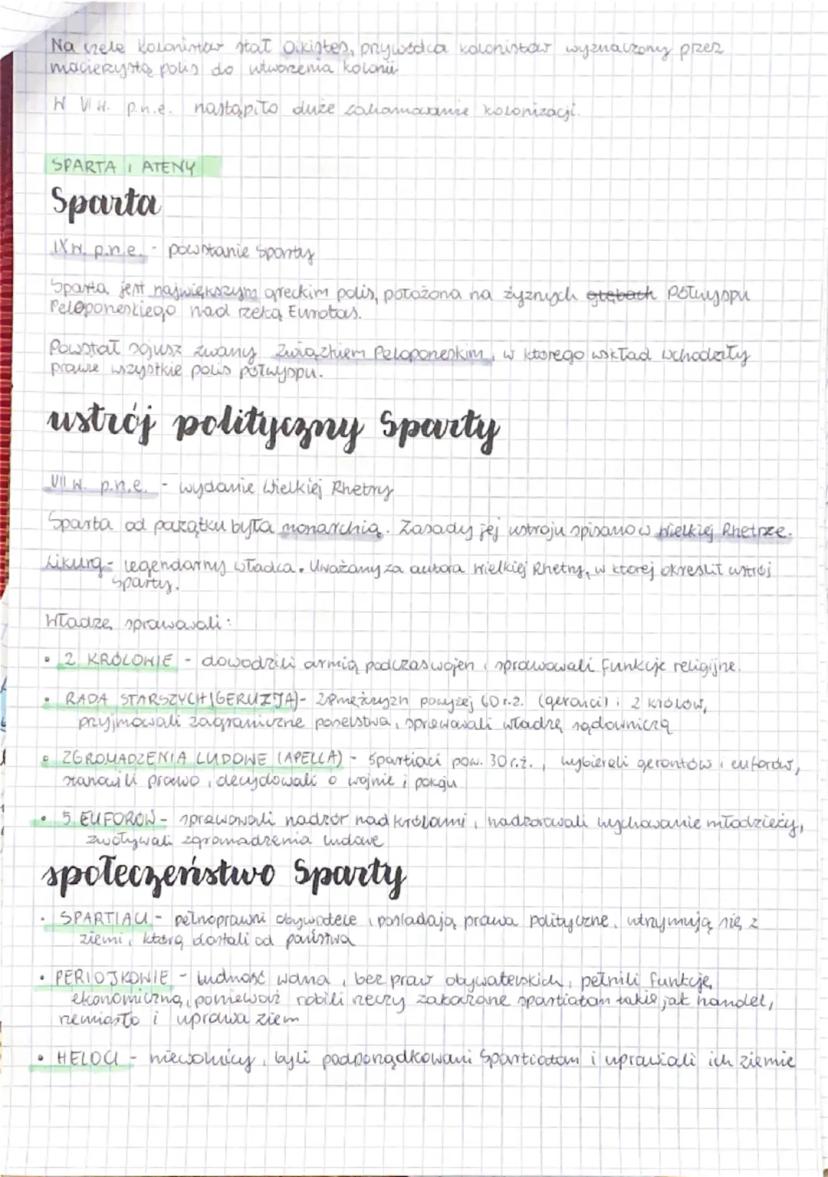 Na czele kolonistów stał Oikistes, przywódca kolonistów wyznaczony przez
macierzystą polis do utworzenia kolonii
W VI w. p.n.e. nastąpiło duże zahamowanie kolonizacji.
SPARTA i ATENY
Sparta
IX w. p.n.e. - powstanie Sparty
Sparta jest największym greckim polis, położona na żyznych glebach Półwyspu
Peloponeskiego nad rzeką Eurotas.
Powstał sojusz zwany Związkiem Peloponeskim, w którego wskład wchodziły
prawie wszystkie polis półwyspu.
ustrój polityczny Sparty
VII w. p.n.e. - wydanie Wielkiej Rhetry
Sparta od początku była monarchią. Zasady jej ustroju spisano w Wielkiej Rhetrze.
Likurg - legendarny władca. Uważany za autora Wielkiej Rhetry, w której określił ustrój
Sparty.
Władzę sprawowali:
• 2 KRÓLOWIE - dowodzili armią podczas wojen i sprawowali funkcje religijne.
• RADA STARSZYCH (GERUZJA) - 28 mężczyzn powyżej 60 r.ż. (geronci) i 2 królów,
przyjmowali zagraniczne poselstwa, sprawowali władzę sądowniczą
• ZGROMADZENIA LUDOWE (APELLA) - Spartiaci pow. 30 r.ż., wybierali gerontów i euforów,
stanowili prawo, decydowali o wojnie i pokoju
• 5 EUFORÓW - sprawowali nadzór nad królami, nadzorowali wychowanie młodzieży,
zwoływali zgromadzenia ludowe
społeczeństwo Sparty
• SPARTIACI - pełnoprawni obywatele, posiadają prawa polityczne, utrzymują się z
ziemi, którą dostali od państwa
• PERIOJKOWIE - ludność wolna, bez praw obywatelskich, pełnili funkcję
ekonomiczną, ponieważ robili rzeczy zakazane spartiatom takie jak handel,
rzemiosło i uprawa ziem
• HELOCI - niewolnicy, byli podporządkowani Spartiatom i uprawiali ich ziemie